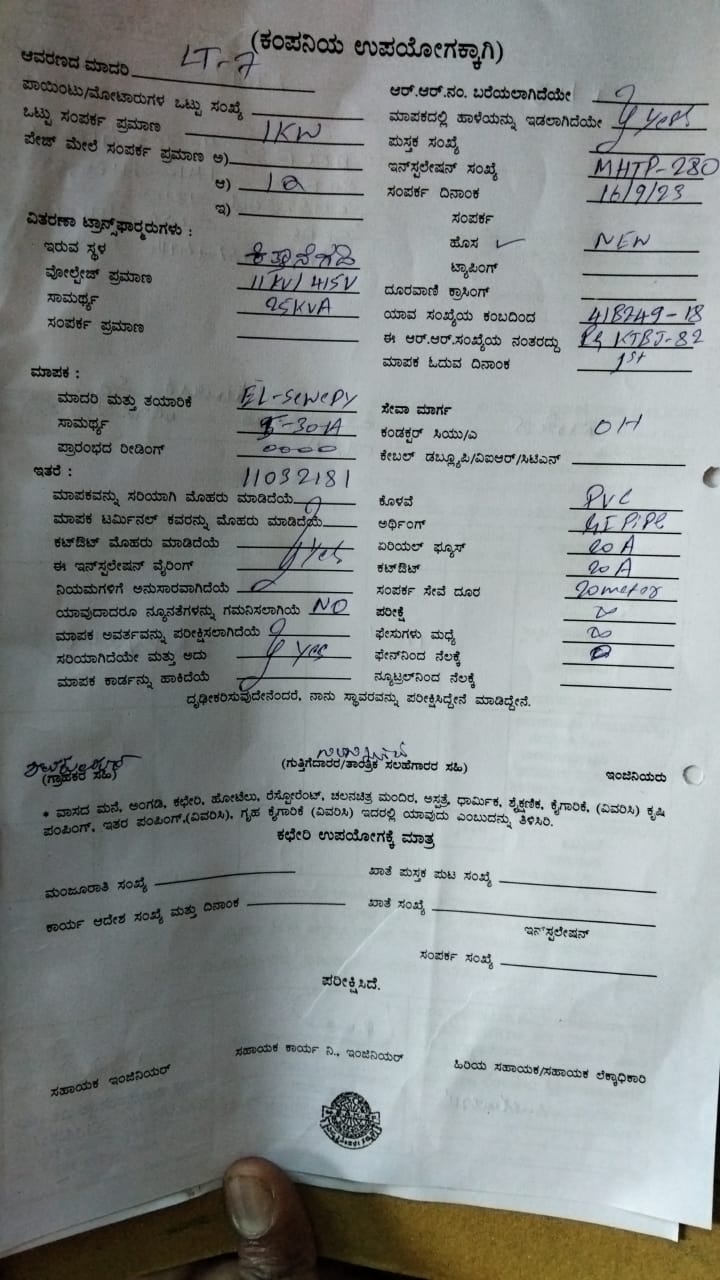 (ಕಂಪನಿಯ ಉಪಯೋಗಕ್ಕಾಗಿ)
ಆವರಣದ ಮಾದರಿ LT-7
ಪಾಯಿಂಟು/ಮೋಟಾರುಗಳ ಒಟ್ಟು ಸಂಖ್ಯೆ
ಒಟ್ಟು ಸಂಪರ್ಕ ಪ್ರಮಾಣ 1KW
ಪೇಚ್ ಮೇಲೆ ಸಂಪರ್ಕ ಪ್ರಮಾಣ ಅ)
ಆ) 1Ø
ಇ)
ವಿತರಣಾ ಟ್ರಾನ್ಸ್‌ಫಾರ್‍ಮರುಗಳು :
ಇರುವ ಸ್ಥಳ
ವೋಲ್ಟೇಜ್ ಪ್ರಮಾಣ 11KV/415V
ಸಾಮರ್ಥ್ಯ 25KVA
ಸಂಪರ್ಕ ಪ್ರಮಾಣ
ಆರ್.ಆರ್.ನಂ. ಬರೆಯಲಾಗಿದೆಯೇ
ಮಾಪಕದಲ್ಲಿ ಹಾಳೆಯನ್ನು ಇಡಲಾಗಿದೆಯೇ yes
ಪುಸ್ತಕ ಸಂಖ್ಯೆ
ಇನ್‌ಸ್ಟಲೇಷನ್ ಸಂಖ್ಯೆ MHTP-280
ಸಂಪರ್ಕ ದಿನಾಂಕ 16/9/23
ಸಂಪರ್ಕ
ಹೊಸ ✓ NEW
ಟ್ಯಾಪಿಂಗ್
ದೂರವಾಣಿ ಕ್ರಾಸಿಂಗ್
ಯಾವ ಸಂಖ್ಯೆಯ ಕಂಬದಿಂದ 418249-18
ಈ ಆರ್.ಆರ್.ಸಂಖ್ಯೆಯ ನಂತರದ್ದು KTBJ-82
ಮಾಪಕ ಓದುವ ದಿನಾಂಕ 1st
ಮಾಪಕ :
ಮಾದರಿ ಮತ್ತು ತಯಾರಿಕೆ
ಸಾಮರ್ಥ್ಯ 5-30A
ಪ್ರಾರಂಭದ ರೀಡಿಂಗ್ 0000
ಇತರೆ : 11032181
ಮಾಪಕವನ್ನು ಸರಿಯಾಗಿ ಮೊಹರು ಮಾಡಿದೆಯೆ
ಮಾಪಕ ಟರ್ಮಿನಲ್ ಕವರನ್ನು ಮೊಹರು ಮಾಡಿದೆಯೆ
ಕಟ್‌ಔಟ್ ಮೊಹರು ಮಾಡಿದೆಯೆ yes
ಈ ಇನ್‌ಸ್ಟಲೇಷನ್ ವೈರಿಂಗ್
ನಿಯಮಗಳಿಗೆ ಅನುಸಾರವಾಗಿದೆಯೆ
ಯಾವುದಾದರೂ ನ್ಯೂನತೆಗಳನ್ನು ಗಮನಿಸಲಾಗಿಯೆ NO
ಮಾಪಕ ಅವರ್ತವನ್ನು ಪರೀಕ್ಷಿಸಲಾಗಿದೆಯೆ
ಸರಿಯಾಗಿದೆಯೇ ಮತ್ತು ಅದು yes
ಮಾಪಕ ಕಾರ್ಡನ್ನು ಹಾಕಿದೆಯೆ
ಸೇವಾ ಮಾರ್ಗ
ಕಂಡಕ್ಟರ್ ಸಿಯು/ಎ OH
ಕೇಬಲ್ ಡಬ್ಲ್ಯೂಪಿ/ವಿಐಆರ್/ಸಿಟಿಎಸ್
ಕೊಳವೆ PVC
ಅರ್ಥಿಂಗ್ GI Pipe
ಏರಿಯಲ್ ಫ್ಯೂಸ್ 20A
ಕಟ್‌ಔಟ್ 20A
ಸಂಪರ್ಕ ಸೇವೆ ದೂರ 20meter
ಪರೀಕ್ಷೆ ∞
ಫೇಸುಗಳು ಮಧ್ಯೆ ∞
ಫೇಸ್‌ನಿಂದ ನೆಲಕ್ಕೆ
ನ್ಯೂಟ್ರಲ್‌ನಿಂದ ನೆಲಕ್ಕೆ
ದೃಢೀಕರಿಸುವುದೇನೆಂದರೆ, ನಾನು ಸ್ಥಾವರವನ್ನು ಪರೀಕ್ಷಿಸಿದ್ದೇನೆ ಮಾಡಿದ್ದೇನೆ.
(ಗ್ರಾಹಕರ ಸಹಿ)
(ಗುತ್ತಿಗೆದಾರರ/ತಾಂತ್ರಿಕ ಸಲಹೆಗಾರರ ಸಹಿ)
ಇಂಜಿನಿಯರು
* ವಾಸದ ಮನೆ, ಅಂಗಡಿ, ಕಛೇರಿ, ಹೋಟೆಲು, ರೆಸ್ಟೋರೆಂಟ್, ಚಲನಚಿತ್ರ ಮಂದಿರ, ಆಸ್ಪತ್ರೆ, ಧಾರ್ಮಿಕ, ಶೈಕ್ಷಣಿಕ, ಕೈಗಾರಿಕೆ, (ವಿವರಿಸಿ) ಕೃಷಿ
ಪಂಪಿಂಗ್, ಇತರ ಪಂಪಿಂಗ್,(ವಿವರಿಸಿ), ಗೃಹ ಕೈಗಾರಿಕೆ (ವಿವರಿಸಿ) ಇದರಲ್ಲಿ ಯಾವುದು ಎಂಬುದನ್ನು ತಿಳಿಸಿರಿ.
ಕಛೇರಿ ಉಪಯೋಗಕ್ಕೆ ಮಾತ್ರ
ಮಂಜೂರಾತಿ ಸಂಖ್ಯೆ
ಕಾರ್ಯ ಆದೇಶ ಸಂಖ್ಯೆ ಮತ್ತು ದಿನಾಂಕ
ಖಾತೆ ಪುಸ್ತಕ ಪುಟ ಸಂಖ್ಯೆ
ಖಾತೆ ಸಂಖ್ಯೆ
ಇನ್‌ಸ್ಟಲೇಷನ್
ಸಂಪರ್ಕ ಸಂಖ್ಯೆ
ಪರೀಕ್ಷಿಸಿದೆ.
ಸಹಾಯಕ ಇಂಜಿನಿಯರ್
ಸಹಾಯಕ ಕಾರ್ಯ ನಿ., ಇಂಜಿನಿಯರ್
ಹಿರಿಯ ಸಹಾಯಕ/ಸಹಾಯಕ ಲೆಕ್ಕಾಧಿಕಾರಿ